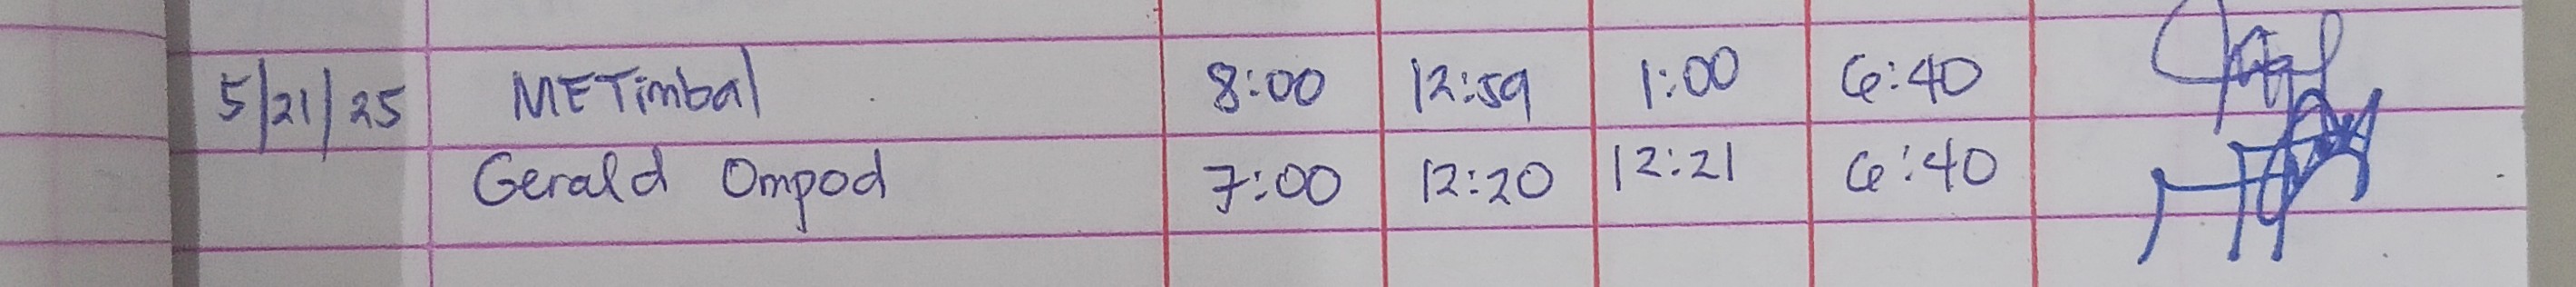 5/21/25 METimbal 8:00 12:59 1:00 6:40
Gerald Ompod 7:00 12:20 12:21 6:40